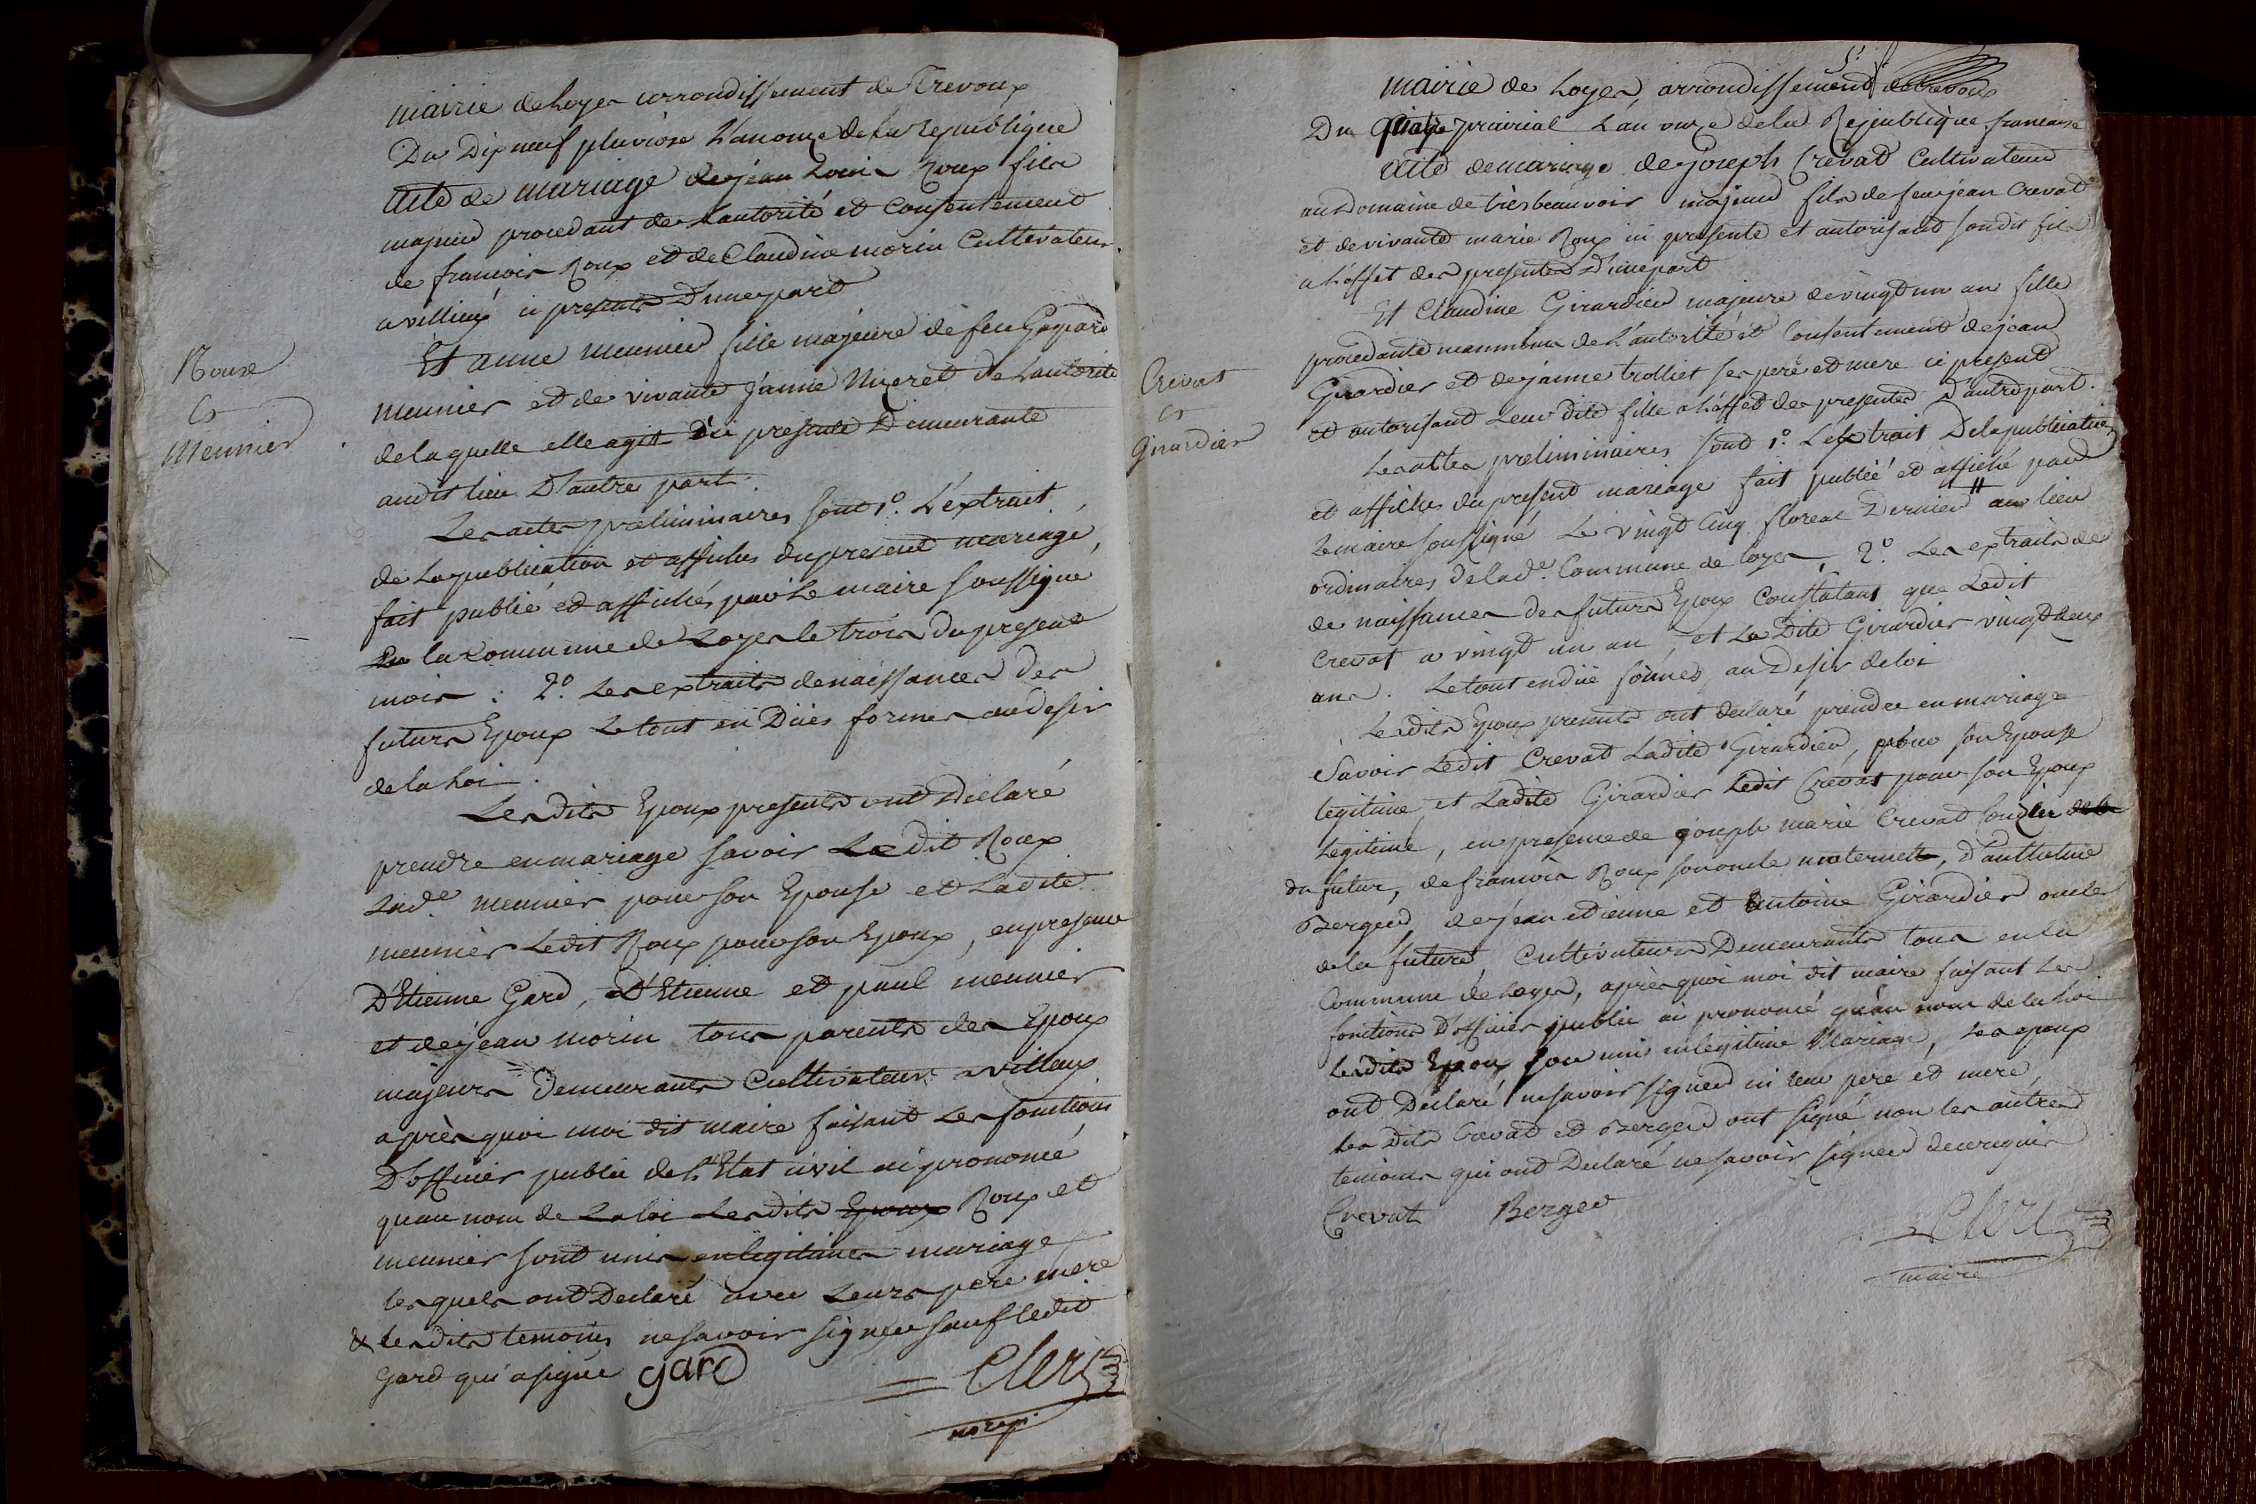 mairie de Loyes arrondissement de Trevoux
Du Dix neuf pluviose L'an onze de la republique
Acte de mariage de jean Louis Roux fils
majeur procedant de L'autorité et consentement
de francois Roux et de Claudine morin Cultivateurs
a villieux ici presents D'une part
Et anne meunier fille majeure de feu Gaspard
Roux
&
Meunier
meunier et de vivante jeanne Nizeret de L'autorité
de laquelle elle agit ici presente Demeurante
audit lieu D'autre part.
Les actes preliminaires sont 1o. L'extrait
de la publication et affiches du present mariage,
fait publié et affichés par le maire soussigné
la commune de Loyes le trois du present
mois : 2o. Les extraits de naissances des
futurs Epoux Le tout en Dües formes au desir
de la Loi.
Lesdits Epoux presents ont Déclaré
prendre en mariage savoir Ledit Roux
Lade. meunier pour son Epouse et Ladite
meunier Ledit Roux pour son Epoux, en presence
D'Etienne Gard, D'Etienne et paul meunier
et de jean morin tous parents des Epoux
majeurs Demeurants Cultivateurs a villieux
après quoi moi dit maire faisant Les fonctions
D'officier public de l'Etat civil ai prononcé
qu'au nom de La loi Lesdits Epoux Roux et
meunier sont unis en legitimes mariage
lesquels ont Declaré avec Leurs pere mere
& lesdits temoins ne savoir signer sauf ledit
Gard qui a signé gard Clerc
maire
mairie de Loyes, arrondissement de Trevoux
Du prairial L'an onze de la Republique francaise
Acte de mariage de Joseph Crevat Cultivateur
au Domaine de très beauvoir majeur fils de feu jean Crevat
et de vivante marie Roux ici presente et autorisant son dit fils
a L'effet des presentes D'une part
Et Claudine Girardier majeure de vingt un an fille
Crevat
&
Girardier
procedante neanmoins de L'autorité et Consentement de jean
Girardier et de jeanne trolliet ses peré et mere ici present
et autorisant Leur dite fille a L'effet des presentes D'autre part.
Les actes preliminaires sont 1o. L'extrait De la publication
et affiches du present mariage fait publié et affiché par
Le maire soussigné Le vingt cinq floreal Dernier aux lieu
ordinaires de lade. Commune de loyes, 2o. Les extraits de
de naissances des futurs Epoux Constatant que Ledit
Crevat a vingt un an, et La Dite Girardier vingt deux
ans. Le tout en düe formes, au Desir de loi
Lesdits Epoux presents ont declaré prendre en mariage
Savoir Ledit Crevat Ladite Girardier, pour son Epouse
legitime, et Ladite Girardier Ledit Crevat pour son Epoux
Legitime, en presence de joseph marie Crevat
du futur, de francois Roux son oncle maternel, d'anthelme
Berger, de jean etienne et Antoine Girardier oncles
de la future, Cultivateurs Demeurants tous en la
Commune de Loyes, après quoi moi dit maire faisant Les
fonctions D'officier public ai prononcé qu'au nom de la Loi
Lesdits Epoux son unis en legitime Mariage, Les epoux
ont Declaré ne savoir signer ni leur pere et mere,
les Dits Crevat et Berger ont signé non les autres
temoins qui ont Declaré ne savoir signer de ce requis
Crevat Berger Clerc
maire